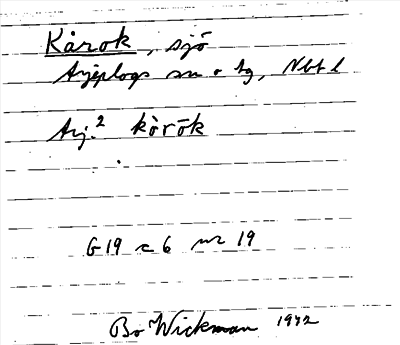 Kårok, sjö
Arjeplogs sn o tg, Nbt l
Arj.² kårōk
G 19 c 6 nr 19
Bo Wickman 1942